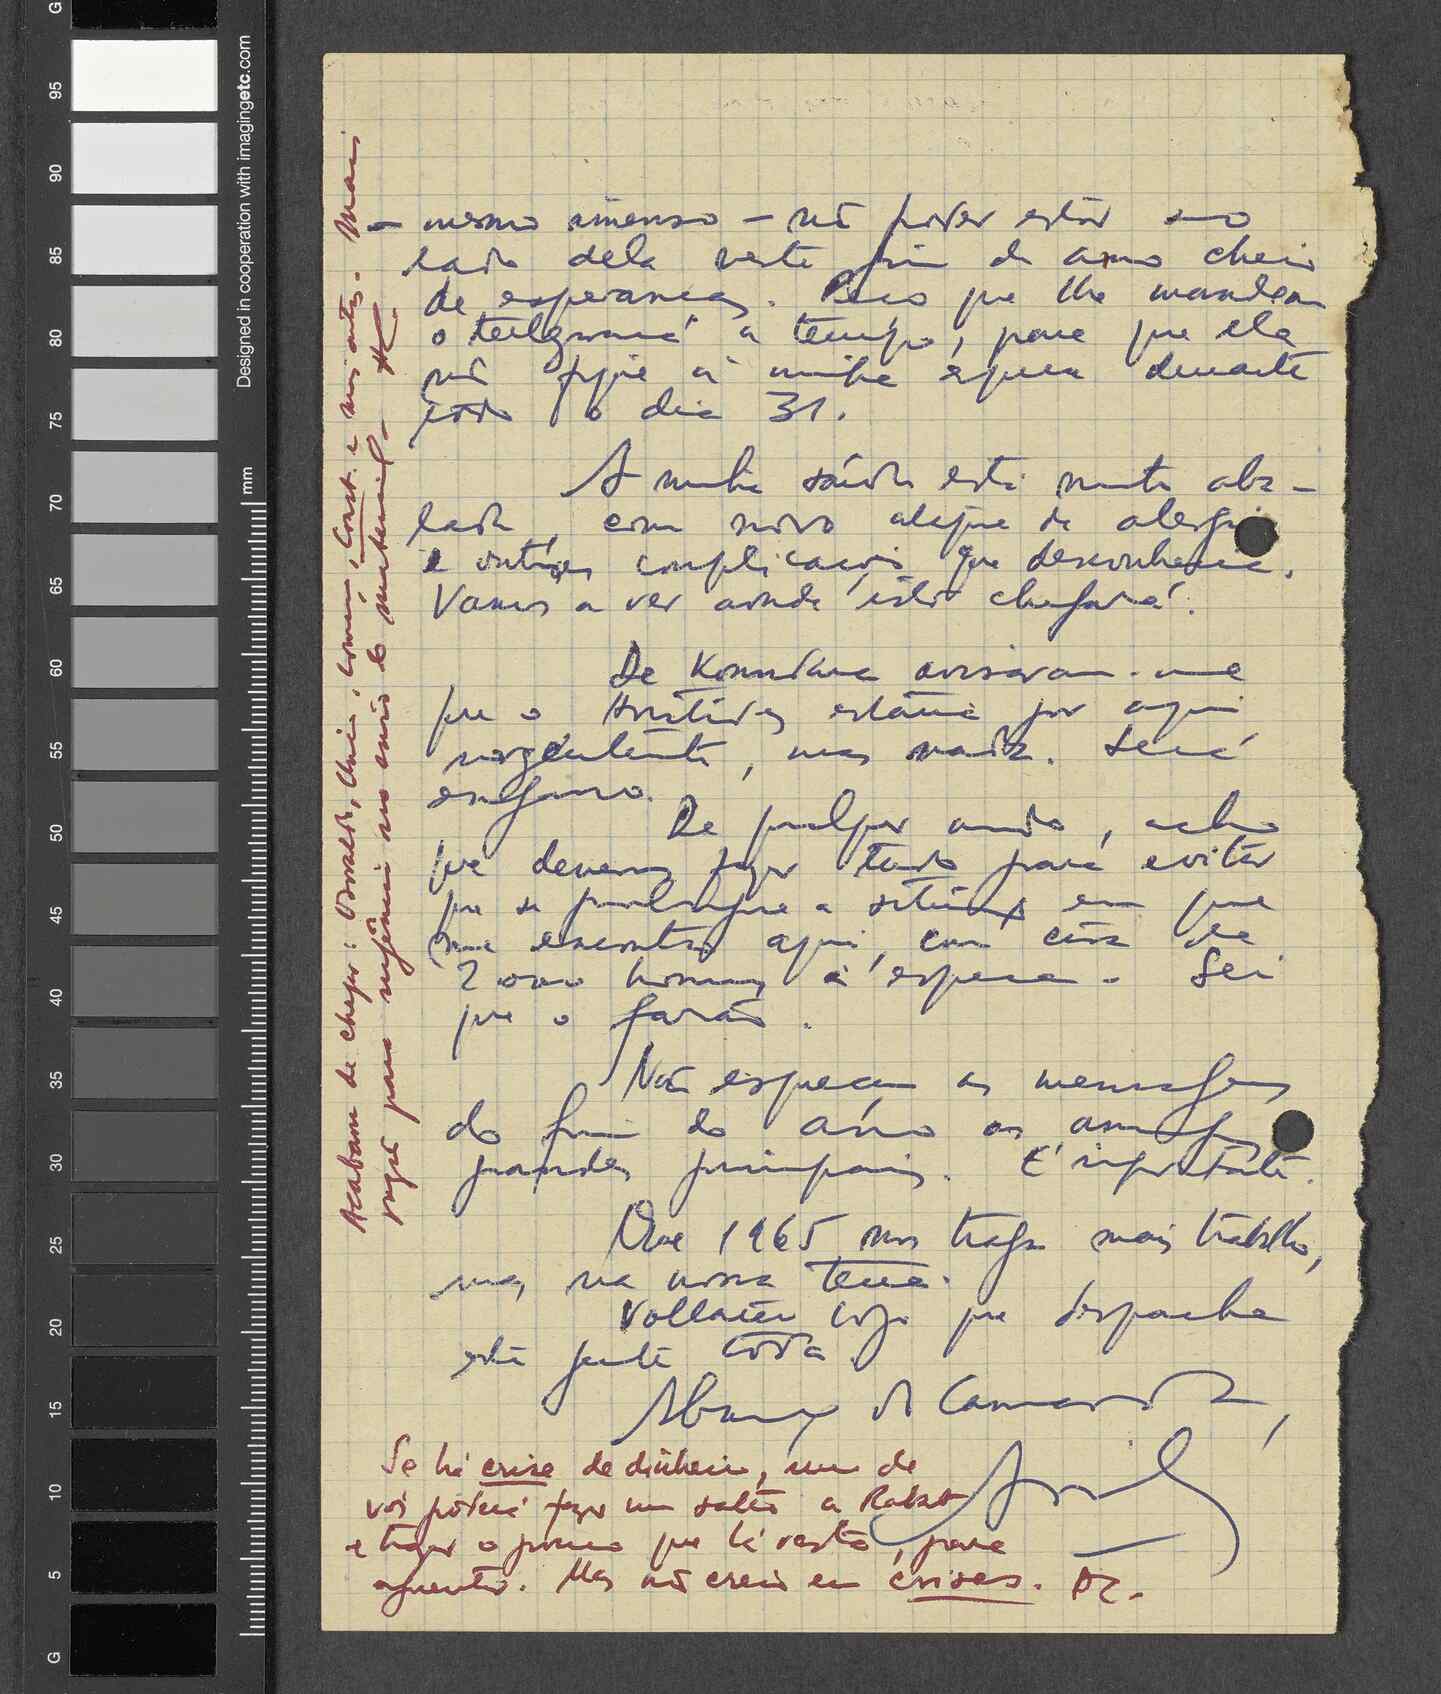 - mesmo imenso - não poder estar ao
lado dela neste fim de ano cheio
de esperanças. Peço que lhe mandem
o telegrama a tempo, para que ela
não fique à minha espera durante
todo o dia 31.
A minha saúde está muito aba-
lada, com novo ataque de alergia
e outras complicações que desconhecia.
Vamos a ver aonde isto chegará.
De Konakry avisaram-me
que o estaria por aqui
urgentemente, mas nada. Será
engano.
De qualquer modo, acho
que devemos fazer tudo para evitar
que se prolongue a situação em que
me encontro aqui, com cerca de
2000 homens à espera. Sei
que o farão.
Não esqueçam as mensagens
do fim do ano aos amigos
grandes principais. É importante.
Que 1965 nos traga mais trabalho,
mas, na nossa terra.
Voltarei logo que despache
esta gente toda.
Abraço do Camarada,
Se há crise de dinheiro, um de
vós poderá fazer um salto a Rabat
e trazer o pouco que lá resta, para
aguentar. Mas não creio em crises. AC.
Acabam de chegar: Osvaldo, Chico, , Const. e uns outros. Mais
razão para urgência no envio do material. AC
Designed in cooperation with imagingetc.com
mm
G
95
90
85
80
75
70
65
60
55
50
45
40
35
30
25
20
15
10
5
G